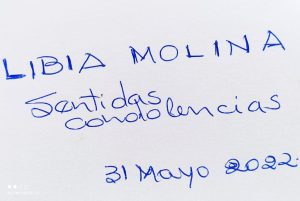 LIBIA MOLINA
Sentidas
condolencias
31 Mayo 2022.